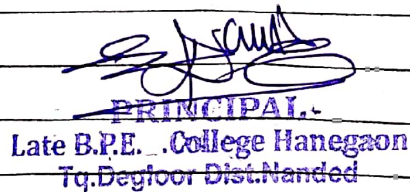 PRINCIPAL
Late B.P.E. College Hanegaon
Tq.Degloor Dist.Nanded